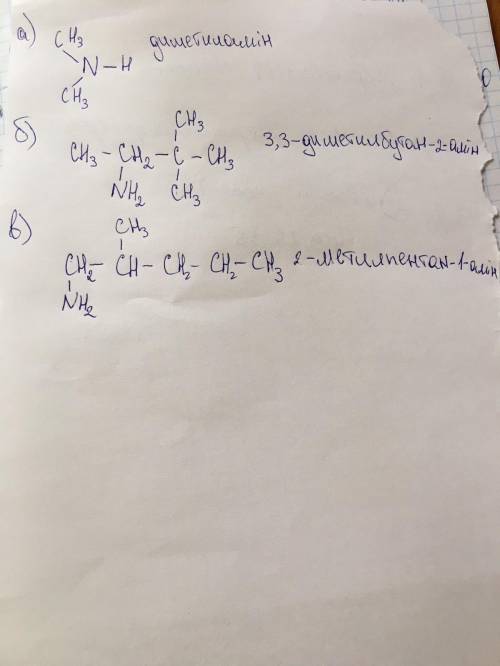 а) CH₃
N – H диметиламін
CH₃
б) CH₃
CH₃ – CH₂ – C – CH₃ 3,3-диметилбутан-2-амін
NH₂ CH₃
в) CH₃
CH₂ – CH – CH₂ – CH₂ – CH₃ 2-метилпентан-1-амін
NH₂